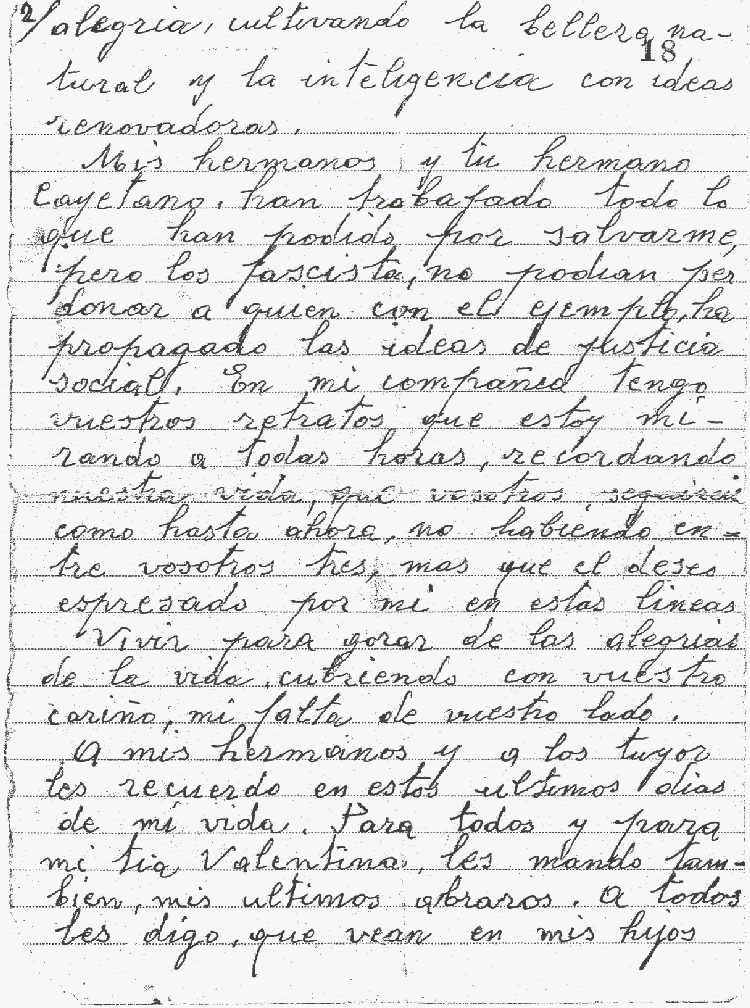 2/ alegria, cultivando la belleza na-
18
tural y la inteligencia con ideas
renovadoras.
Mis hermanos y tu hermano
Cayetano, han trabajado todo lo
que han podido por salvarme,
pero los fascista, no podian per
donar a quien con el ejemplo, ha
propagado las ideas de justicia
social. En mi compañia tengo
vuestros retratos que estoy mi-
rando a todas horas, recordando
nuestra vida, que vosotros, seguireis
como hasta ahora, no habiendo en-
tre vosotros tres, mas que el deseo
espresado por mi en estas lineas
Vivir para gozar de las alegrias
de la vida, cubriendo con vuestro
cariño, mi falta de vuestro lado.
A mis hermanos y a los tuyor
les recuerdo en estos ultimos dias
de mi vida. Para todos y para
mi tia Valentina, les mando tam-
bien, mis ultimos abrazos. A todos
les digo, que vean en mis hijos